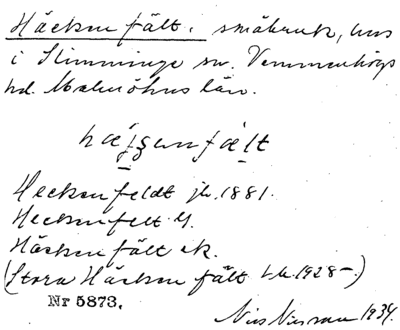 Häckenfält, småbruk, hus
i Slimminge sn. Vemmenhögs
hd. Malmöhus län.
Heckenfeldt jb. 1881.
Heckenfelt
Häckenfält ek.
(Stora Häckenfält 1928-.)
Nr 5873.
Nils Nilsson 1934.